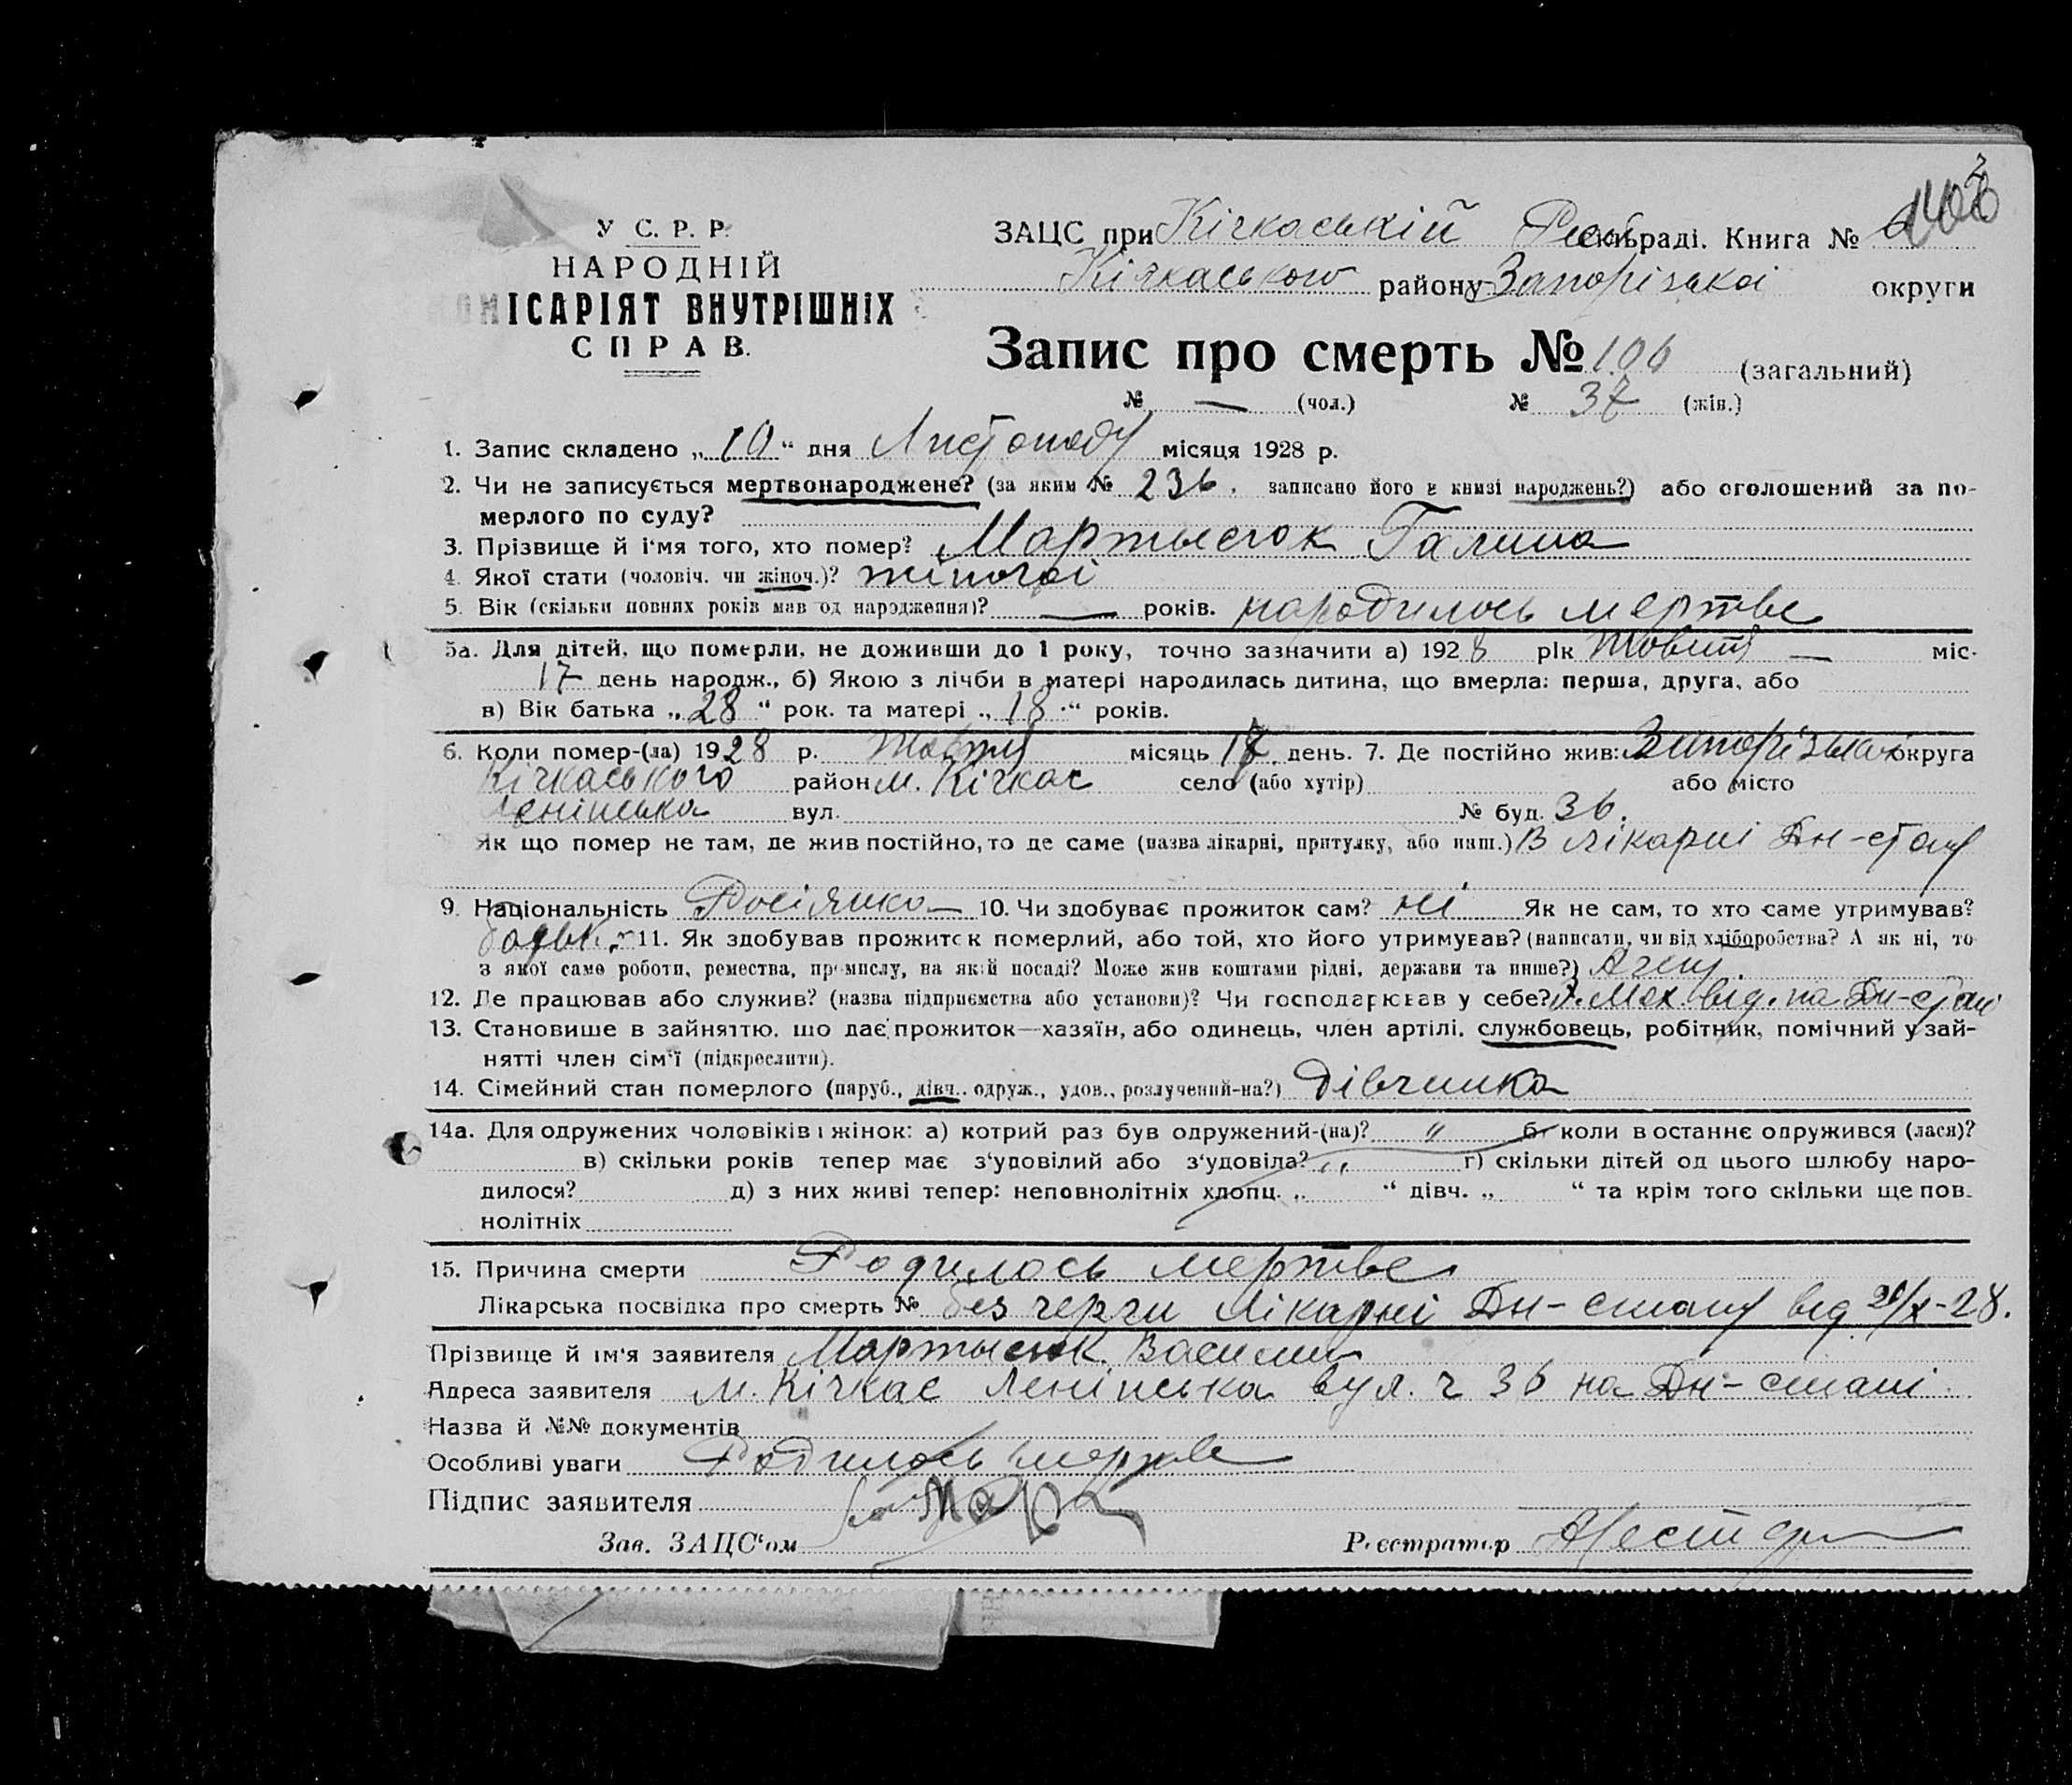 У С. Р. Р.
НАРОДНІЙ
КОМІСАРІЯТ ВНУТРІШНІХ
СПРАВ.
ЗАЦС при Кічкаській раді. Книга №
Кічкаського району Запорізької округи
Запис про смерть № 106 (загальний)
№ — (чол.) № 37 (жін.)
1. Запис складено „10“ дня Листопаду місяця 1928 р.
2. Чи не записується мертвонароджене? (за яким № 236. записано його в книзі народжень?) або оголошений за по-
мерлого по суду?
3. Прізвище й ім'я того, хто помер? Мартысюк Галина
4. Якої стати (чоловіч. чи жіноч.)? жіночої
5. Вік (скільки повних років мав од народження)? — років. народилось мертве
5а. Для дітей, що померли, не доживши до 1 року, точно зазначити а) 1928 рік Жовтня — міс.
17 день народж., б) Якою з лічби в матері народилась дитина, що вмерла: перша, друга, або
в) Вік батька „28“ рок. та матері „18“ років.
6. Коли помер-(ла) 1928 р. Жовтня місяць день. 7. Де постійно жив: Запорізька округа
Кічкаського район м. Кічкас село (або хутір) або місто
Ленінська вул. № буд. 36.
Як що помер не там, де жив постійно, то де саме (назва лікарні, притулку, або инш.) В лікарні Дн-стану
9. Національність Росіянка — 10. Чи здобуває прожиток сам? ні Як не сам, то хто саме утримував?
батько 11. Як здобував прожиток померлий, або той, хто його утримував? (написати, чи від хліборобства? А як ні, то
з якої саме роботи, ремества, промислу, на якій посаді? Може жив коштами рідні, держави та инше?) Агент.
12. Де працював або служив? (назва підприємства або установи)? Чи господарював у себе? Мех. від. на Дн-стані
13. Становише в зайняттю, що дає прожиток—хазяїн, або одинець, член артілі, службовець, робітник, помічний у зай-
нятті член сім'ї (підкреслити).
14. Сімейний стан померлого (паруб., дівч., одруж., удов., розлучений-на?) Дівчинка
14а. Для одружених чоловіків і жінок: а) котрий раз був одружений-(на)? „ б) коли востаннє одружився (лася)?
в) скільки років тепер має з'удовілий або з'удовіла? „ г) скільки дітей од цього шлюбу наро-
дилося? д) з них живі тепер: неповнолітніх хлопц. „ “ дівч. „ “ та крім того скільки ще пов-
нолітніх
15. Причина смерти Родилось мертве
Лікарська посвідка про смерть № без черги лікарні Дн-стану від 20/X-28.
Прізвище й ім'я заявителя Мартысюк Василий
Адреса заявителя м. Кічкас Ленінська вул. ч 36 на Дн-стані.
Назва й №№ документів
Особливі уваги Родилось мертве
Підпис заявителя
Зав. ЗАЦС'ом Реєстратор